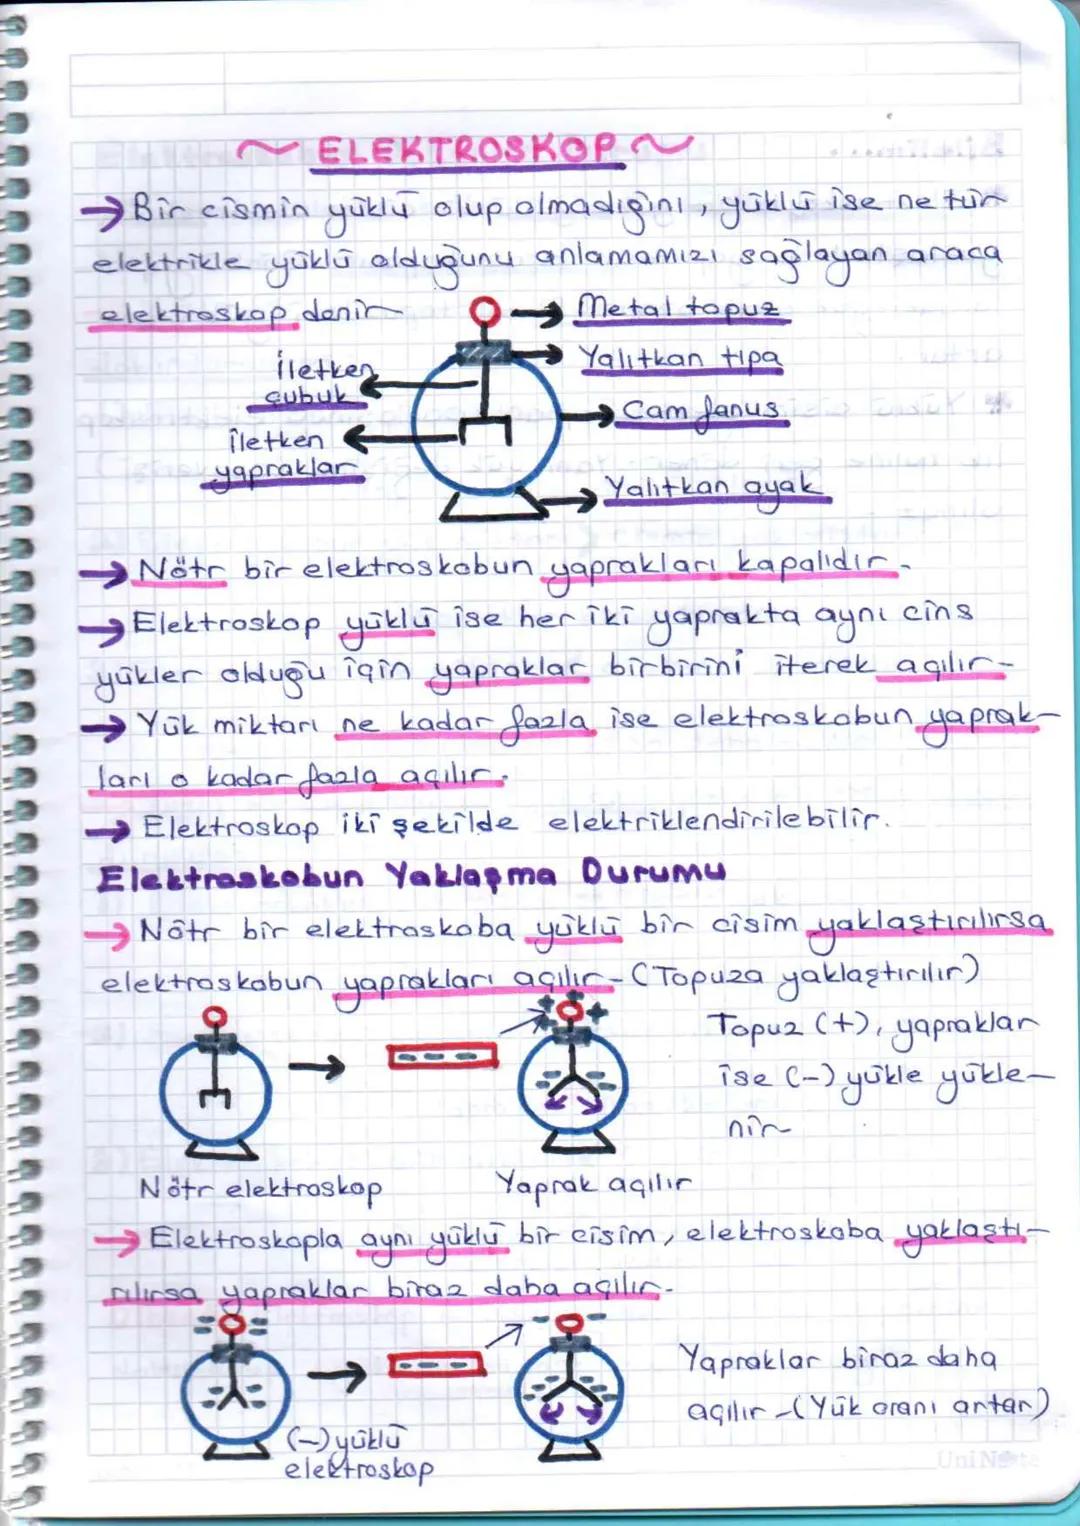 ~ ELEKTROSKOP ~
→ Bir cismin yüklü olup olmadığını, yüklü ise ne tür
elektrikle yüklü olduğunu anlamamızı sağlayan araca
elektroskop denir
→ Metal topuz
→ Yalıtkan tıpa
İletken
çubuk
→ Cam fanus
iletken
yapraklar
→ Yalıtkan ayak
→ Nötr bir elektroskobun yaprakları kapalıdır.
→ Elektroskop yüklü ise her iki yaprakta aynı cins
yükler olduğu için yapraklar birbirini iterek açılır.
→ Yük miktarı ne kadar fazla ise elektroskobun yaprak-
ları o kadar fazla açılır.
→ Elektroskop iki şekilde elektriklendirilebilir.
Elektroskobun Yaklaşma Durumu
→ Nötr bir elektroskoba yüklü bir cisim yaklaştırılırsa
elektroskobun yaprakları açılır. (Topuza yaklaştırılır)
Topuz (+), yapraklar
ise (-) yükle yükle-
nir
Nötr elektroskop
Yaprak açılır
→ Elektroskopla aynı yüklü bir cisim, elektroskoba yaklaştı-
rılırsa yapraklar biraz daha açılır.
Yapraklar biraz daha
açılır - (Yük oranı artar)
(-) yüklü
elektroskop
UniNote